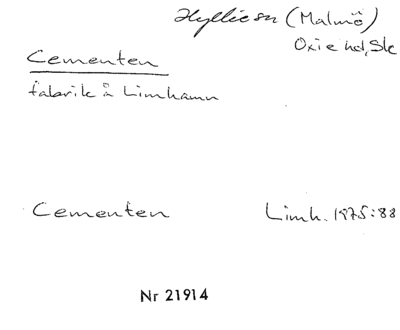 Hyllie sn (Malmö)
Oxie hd, Sk
Cementen
fabrik å Limhamn
Cementen Limh. 1975:88
Nr 21914